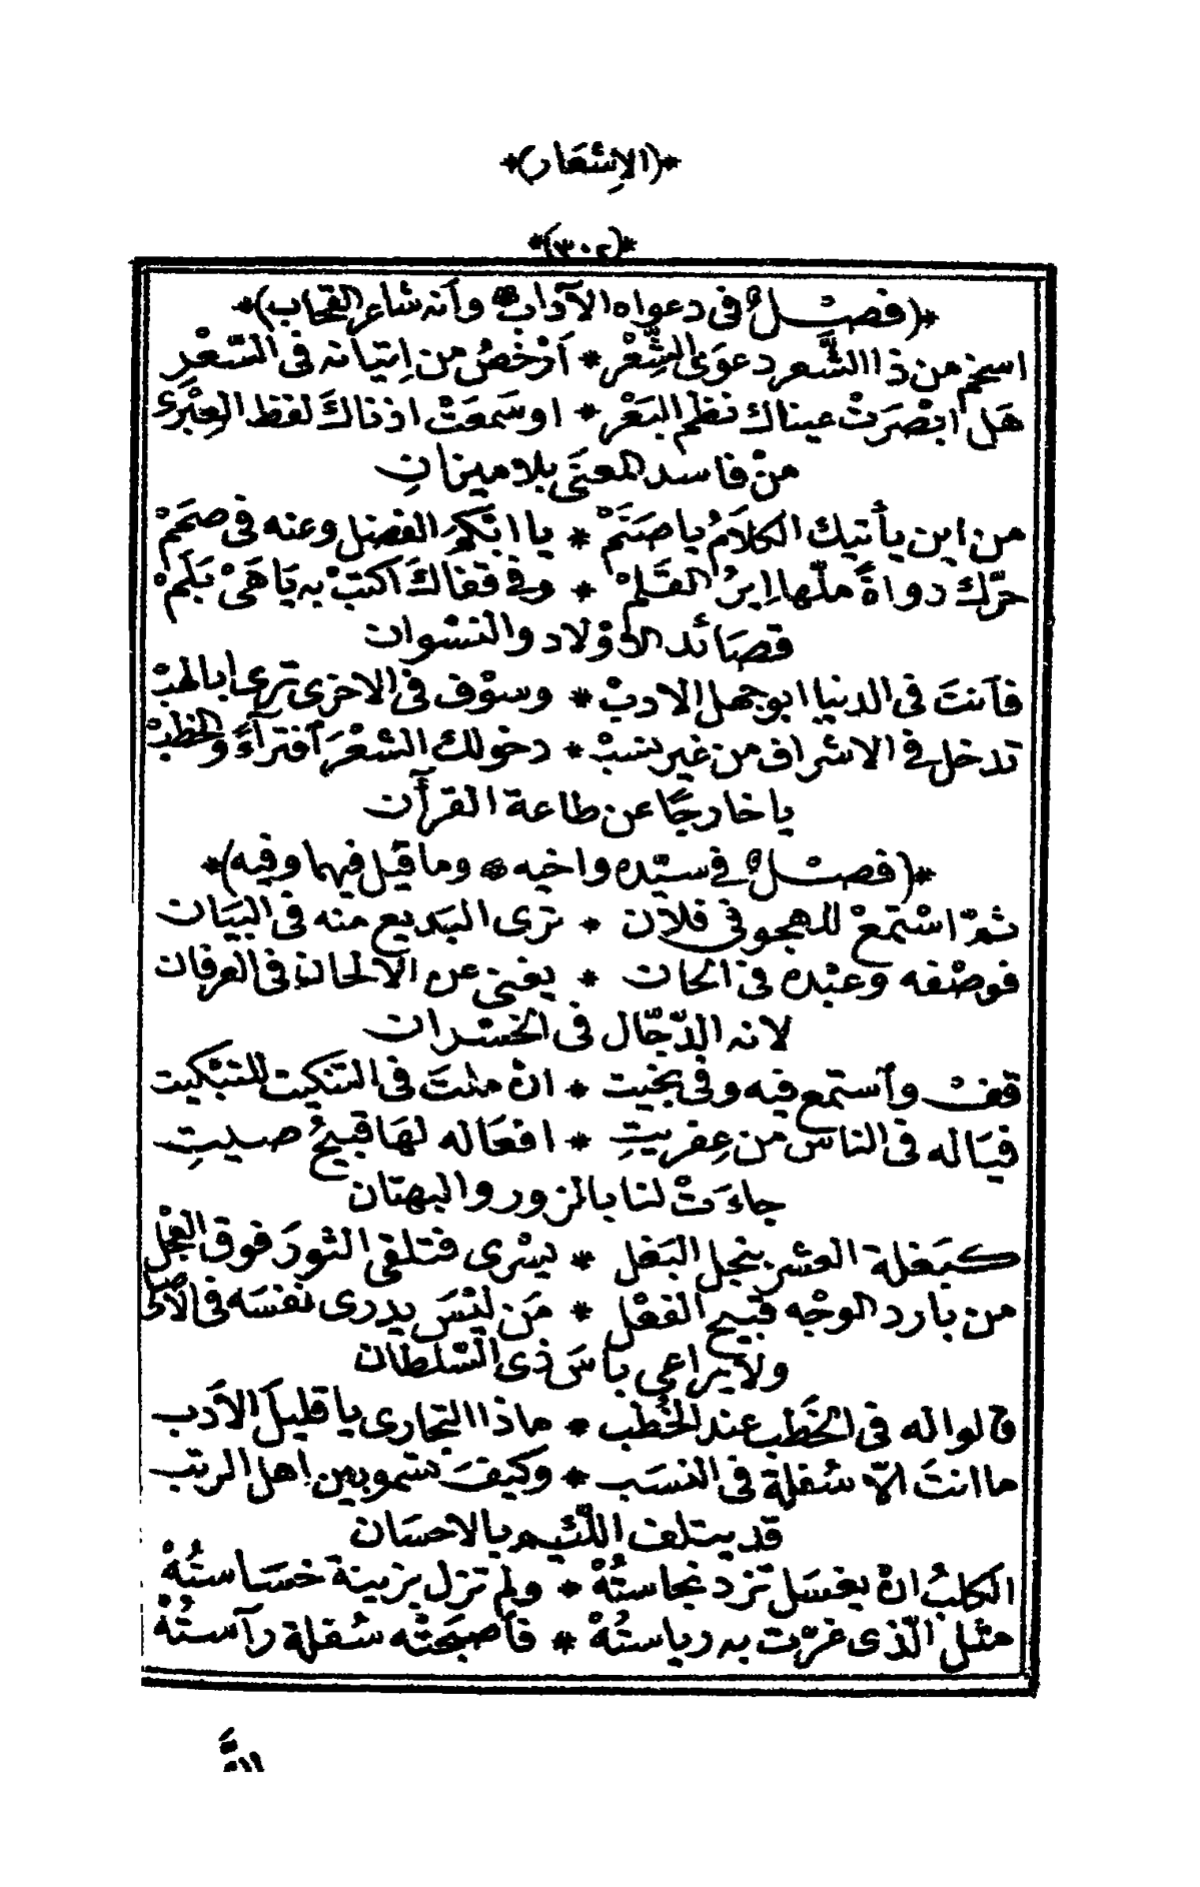 *(الإشعار)*
*(٣٠٢)*
*(فصْلٌ فى دعواه الآداب وأنه شاعر القحاب)*
اسخم من ذا الشَّعر دعوَى الشِّعْر * أرْخَصُ من إتيانه فى السّعْرِ
هَل ابْصَرَتْ عيناك نظم البَعْر * او سَمعَتْ اذناكَ لفظ العِبْرِى
منْ فاسد المعنَى بلا ميزانِ
من اين يأتيك الكلامُ يا صَنَمْ * يا ابْكَمَ الفضل وعنه فى صمَمْ
حرّك دواةً ملّها إيرُ القَلمْ * وفى قفاكَ اكتبْ به يَا هَىْ بَلَمْ
قصَائد الاوْلاد والنسْوان
فأنتَ فى الدنيا ابو جهل الادبْ * وسوْف فى الاخرى ترى ابا لهبْ
تدخل فى الاشراف من غير نسَبْ * دخولك الشعْرَ أفترآءً والخطبْ
يا خارجًا عن طاعة القرأن
*(فصْلٌ فى سيّده واخيه وما قيْل فيهما وفيه)*
ثمّ اسْتمعْ للهجو فى فلان * ترى البَديع منه فى البيَان
فوصْفه وعبْده فى الحان * يغنى عن الالحان فى العرفان
لانه الدّجّال فى الخسْران
قفْ وأستمع فيه وفى بخيت * انْ ملتَ فى التنكيت للتبْكيت
فيَاله فى الناس من عِفريتِ * افعَاله لهَا قبيحُ صيتِ
جاءَتْ لنا بالزور والبهتان
كبَغلة العشر بنجل البَغل * يسْرى فتلقى الثورَ فوق العجْل
من بارد الوجْه قبيح الفعْل * مَن ليْسَ يدرى نفسَه فى الاصْل
ولا يراعى باْسَ ذى السّلطان
قالوا له فى الخَطب عند الخُطب * ماذا التجارى يا قليلَ الأدب
ما انتَ الاّ سُفلة فى النسَب * وكيفَ تسمو بين اهل الرتب
قد يتلف اللئيم بالاحسَان
الكلبُ انْ يغسَل تزد نجاستُهْ * ولم تزل بزينة خسَاستُهْ
مثل الّذى غرّت به رياستُهْ * فأصبحَتْه سُفلة رآستُهْ